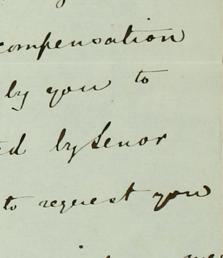 compensation
by you to
ed by Senor
to request you